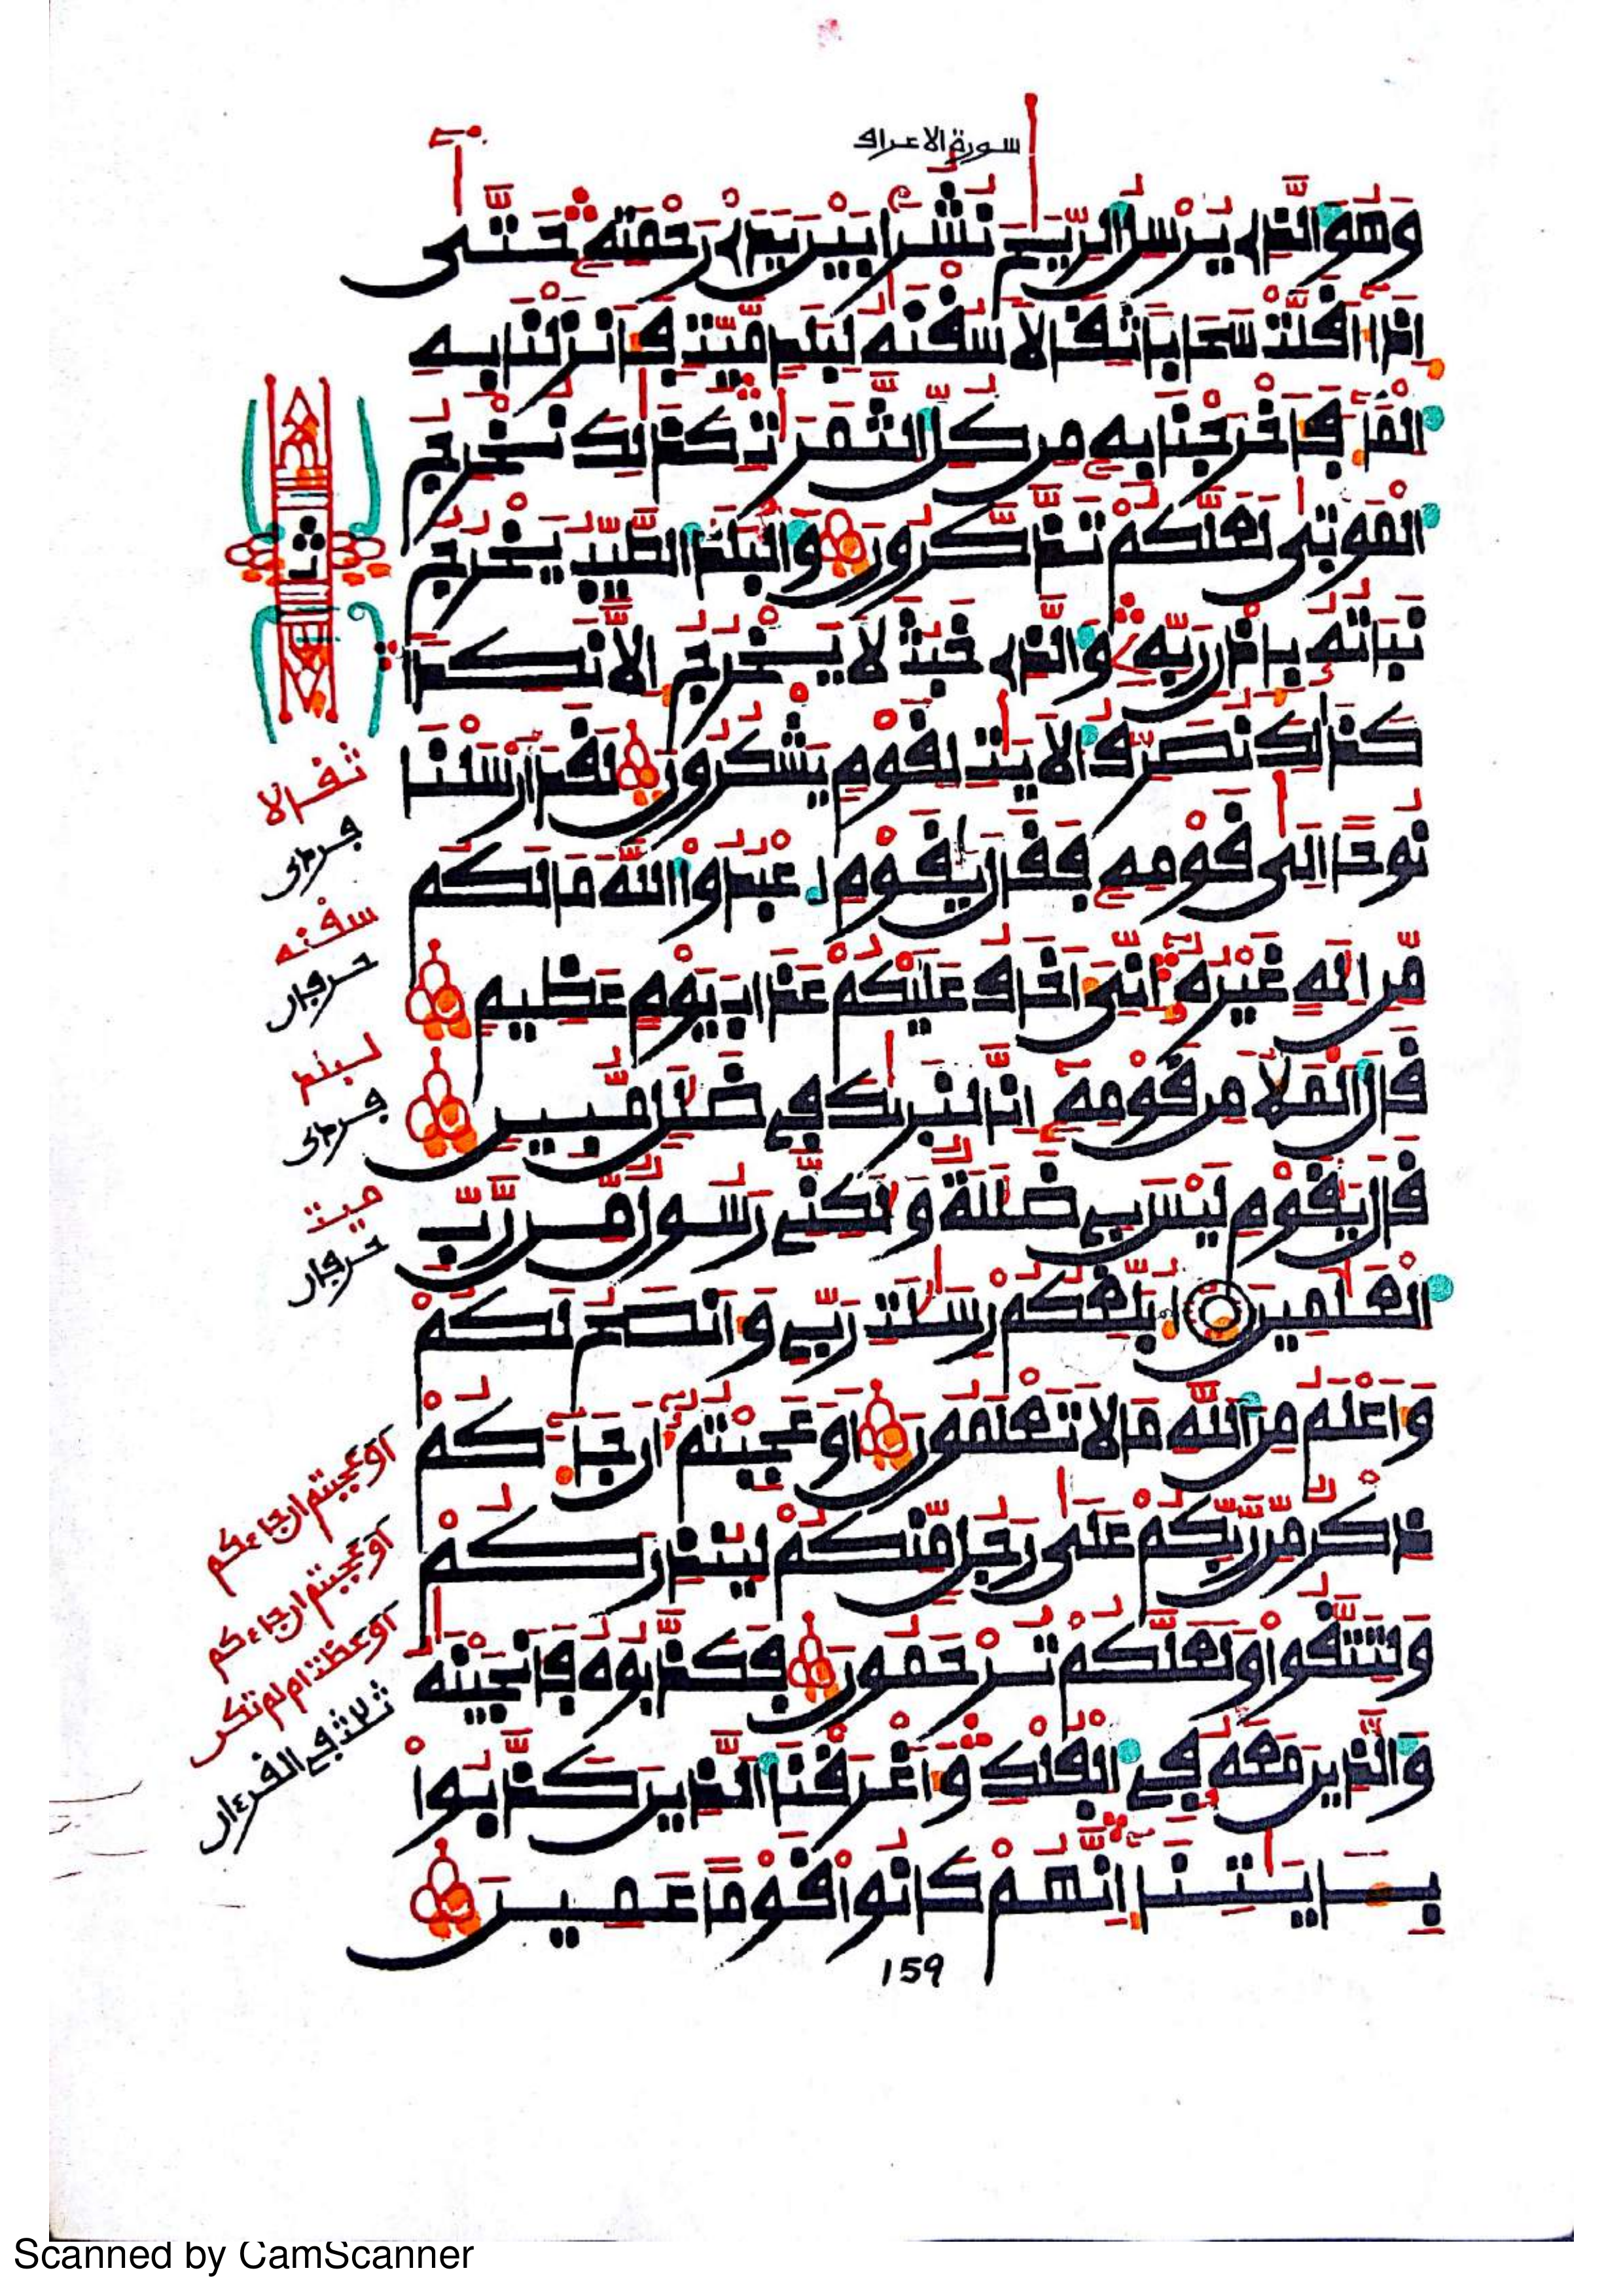 سورة الاعراف
وَهُوَ الَّذِي يُرْسِلُ الرِّيَٰحَ نُشُرًا بَيْنَ يَدَيْ رَحْمَتِهِ حَتَّىٰ
إِذَا أَقَلَّتْ سَحَابًا ثِقَالًا سُقْنَٰهُ لِبَلَدٍ مَّيِّتٍ فَأَنزَلْنَا بِهِ
الْمَآءَ فَأَخْرَجْنَا بِهِ مِن كُلِّ الثَّمَرَٰتِ كَذَٰلِكَ نُخْرِجُ
الْمَوْتَىٰ لَعَلَّكُمْ تَذَّكَّرُونَ وَالْبَلَدُ الطَّيِّبُ يَخْرُجُ
نَبَاتُهُ بِإِذْنِ رَبِّهِ وَالَّذِي خَبُثَ لَا يَخْرُجُ إِلَّا نَكِدًا
كَذَٰلِكَ نُصَرِّفُ الْأَيَٰتِ لِقَوْمٍ يَشْكُرُونَ لَقَدْ أَرْسَلْنَا
نُوحًا إِلَىٰ قَوْمِهِ فَقَالَ يَٰقَوْمِ اعْبُدُوا اللَّهَ مَا لَكُم
مِّنْ إِلَٰهٍ غَيْرُهُ إِنِّيَ أَخَافُ عَلَيْكُمْ عَذَابَ يَوْمٍ عَظِيمٍ
قَالَ الْمَلَأُ مِن قَوْمِهِ إِنَّا لَنَرَىٰكَ فِي ضَلَٰلٍ مُّبِينٍ
قَالَ يَٰقَوْمِ لَيْسَ بِي ضَلَٰلَةٌ وَلَٰكِنِّي رَسُولٌ مِّن رَّبِّ
الْعَٰلَمِينَ أُبَلِّغُكُمْ رِسَٰلَٰتِ رَبِّي وَأَنصَحُ لَكُمْ
وَأَعْلَمُ مِنَ اللَّهِ مَا لَا تَعْلَمُونَ أَوَعَجِبْتُمْ أَن جَآءَكُمْ
ذِكْرٌ مِّن رَّبِّكُمْ عَلَىٰ رَجُلٍ مِّنكُمْ لِيُنذِرَكُمْ
وَلِتَتَّقُوا وَلَعَلَّكُمْ تُرْحَمُونَ فَكَذَّبُوهُ فَأَنجَيْنَٰهُ
وَالَّذِينَ مَعَهُ فِي الْفُلْكِ وَأَغْرَقْنَا الَّذِينَ كَذَّبُوا
بِـَٔايَٰتِنَا إِنَّهُمْ كَانُوا قَوْمًا عَمِينَ
ثقالا
سقنه
حرفان
لبلد
ميت
حرفان
اوعجبتم ان جاءكم
اوعجبتم ان جاءكم
اوعظت ام لم تكن
ثلاث في القرءان
159
Scanned by CamScanner